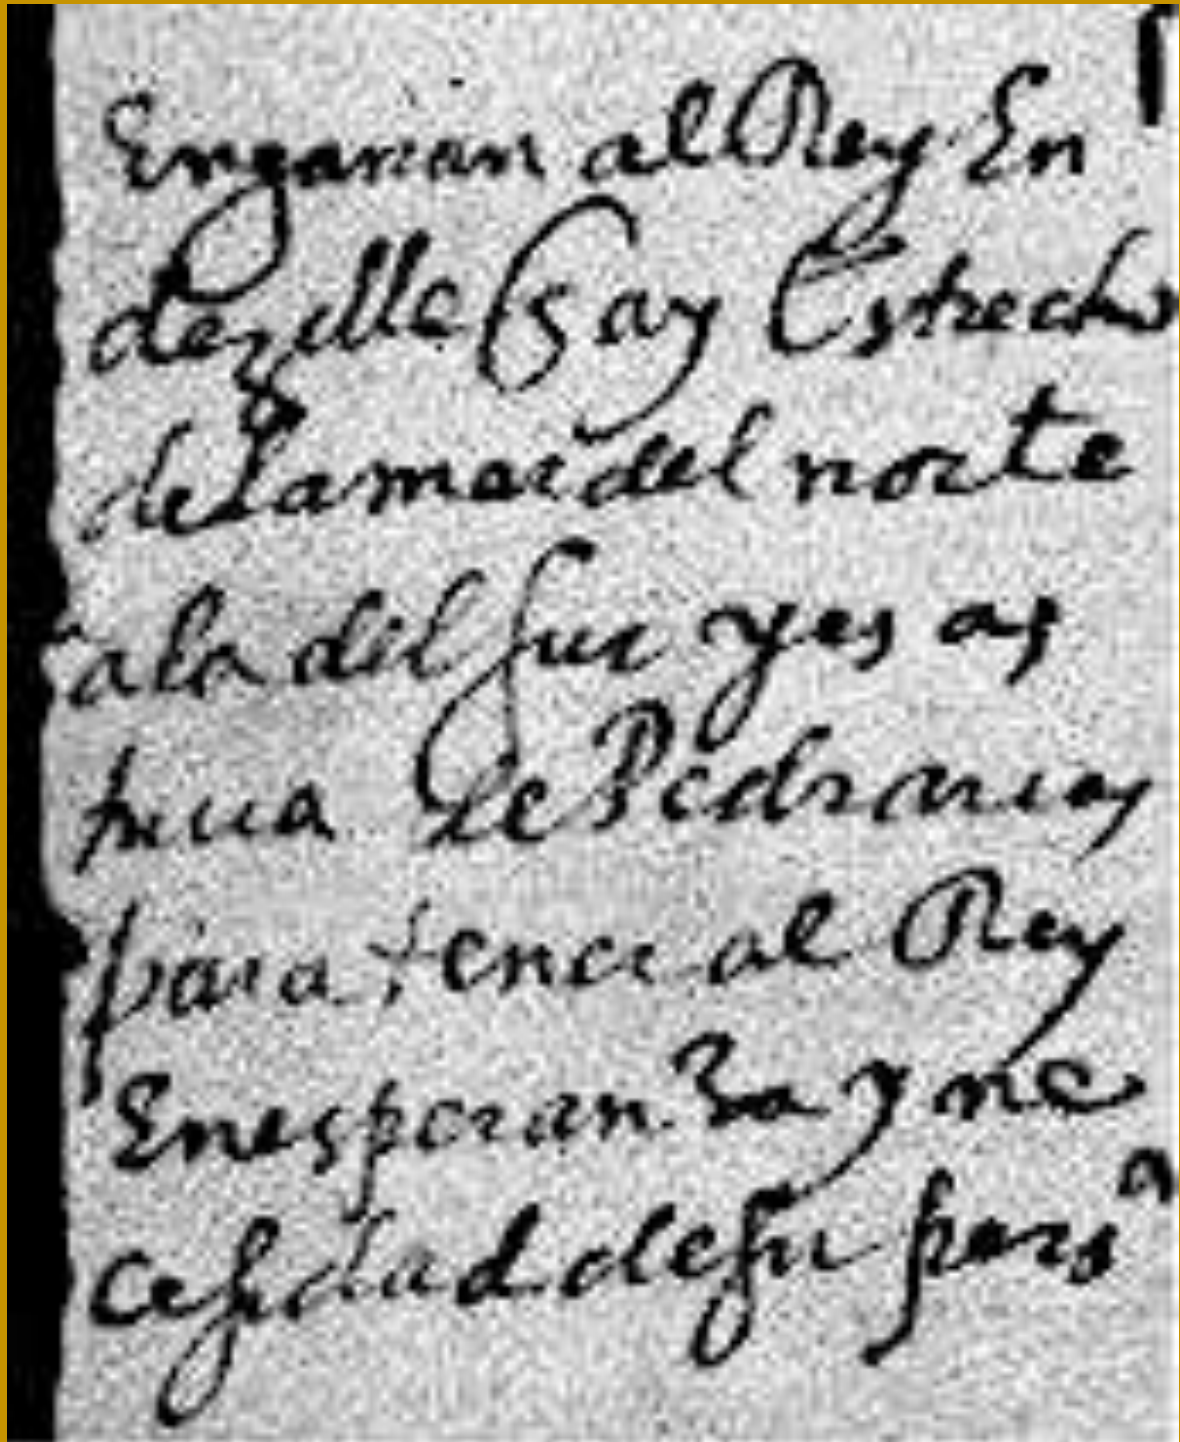 Engañan al Rey En
dezille q ay Estrecho
de la mar del norte
a la del sur y es as
tucia de Pedrarias
para tener al Rey
En esperanza y ne
cesidad de su perso^a